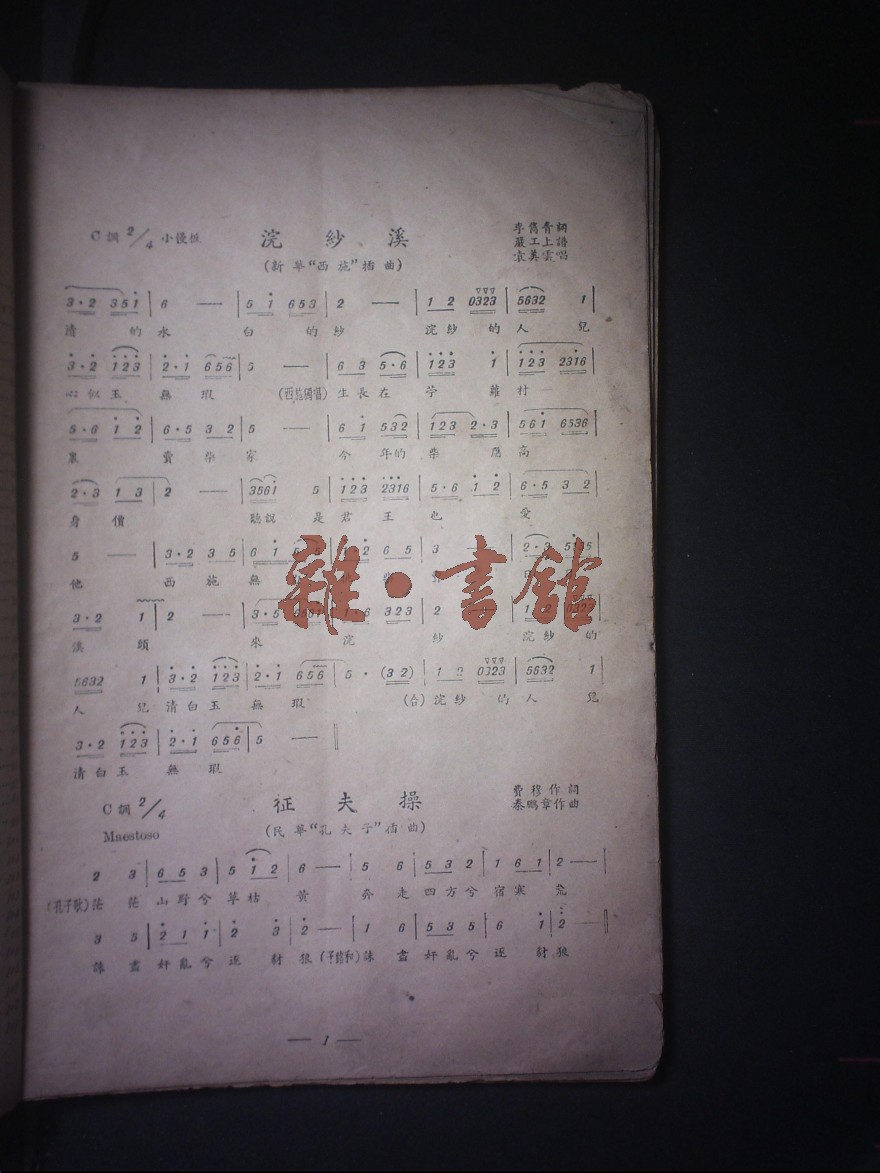 C調 2/4 小慢板
浣紗溪
李雋青詞
嚴工上譜
袁美雲唱
(新華“西施”插曲)
3·2 351 | 6 — | 5 1 653 | 2 — | 1 2 0323 | 5632 1 |
清 的水 白 的紗 浣紗的人 兒
3·2 123 | 2·1 656 | 5 — | 6 3 5·6 | 123 1 | 123 2316 |
心似玉 無 瑕 (西施獨唱) 生長在 苧 蘿村
5·6 1 2 | 6·5 3 2 | 5 — | 6 1 532 | 123 2·3 | 561 6536 |
裏 賣柴家 今 年的柴 應高
2·3 1 3 | 2 — | 3561 5 | 123 2316 | 5·6 1 2 | 6·5 3 2 |
身 價 聽說 是君 王 也 愛
5 — | 3·2 3 5 | 6 1
他 西施無
雜·書館
3·2 1 | 2 —
溪 頭 來 浣 紗 浣紗的
5632 1 | 3·2 123 | 2·1 656 | 5 · (3 2) | 1 2 0323 | 5632 1 |
人 兒清白玉 無 瑕 (合)浣紗 的人 兒
3·2 123 | 2·1 656 | 5 — ‖
清白玉 無 瑕
C調 2/4
征夫操
費穆作詞
秦鵬章作曲
Maestoso
(民華“孔夫子”插曲)
2 3 | 6 5 3 | 5 1 2 | 6 — | 5 6 | 5 3 2 | 1 6 1 | 2 — |
(孔子歌) 茫 茫 山野兮 草枯 黃 奔 走 四方兮 宿寒
3 5 | 2 1 1 | 2 3 | 2 — | 1 6 | 5 3 5 | 6 1 | 2 — ‖
誅 盡 奸亂兮 逐 豺 狼 (子路和) 誅 盡 奸亂兮 逐 豺 狼
— 1 —